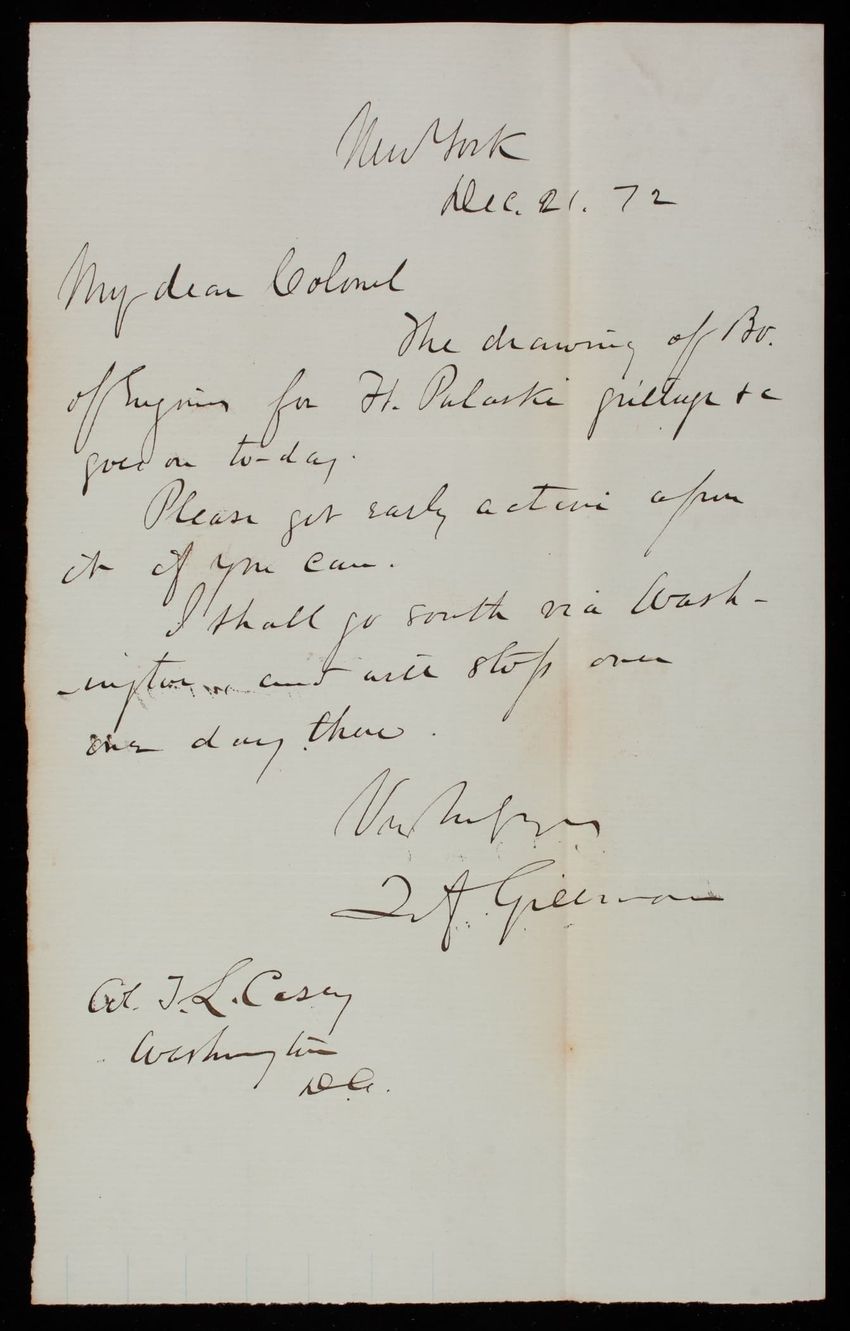 New York
Dec. 21. 72
My dear Colonel
The drawing of Bd.
of Engineers for Ft. Pulaski grillage &c
goes on to-day.
Please get early action upon
it if you can.
I shall go south via Wash-
-ington and will stop over
one day there.
Very truly yours
Q A Gillmore
Col. T. L. Casey
Washington
D.C.